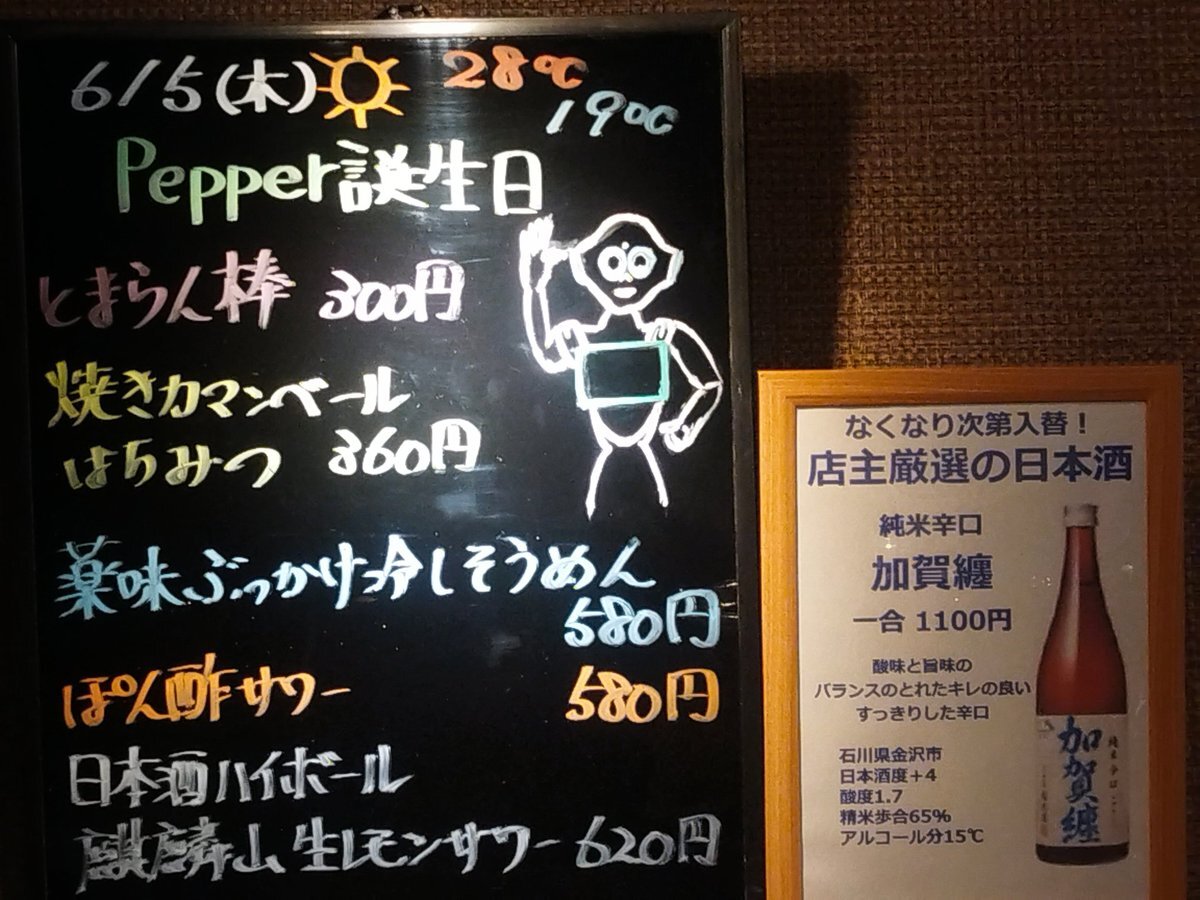 6/5(木) 28℃
19℃
Pepper誕生日
とまらん棒 300円
焼きカマンベール
はちみつ 360円
薬味ぶっかけ冷しそうめん
580円
ぽん酢サワー 580円
日本酒ハイボール
麒麟山生レモンサワー 620円
なくなり次第入替!
店主厳選の日本酒
純米辛口
加賀纏
一合 1100円
酸味と旨味の
バランスのとれたキレの良い
すっきりした辛口
石川県金沢市
日本酒度+4
酸度1.7
精米歩合65%
アルコール分15℃
加賀纏